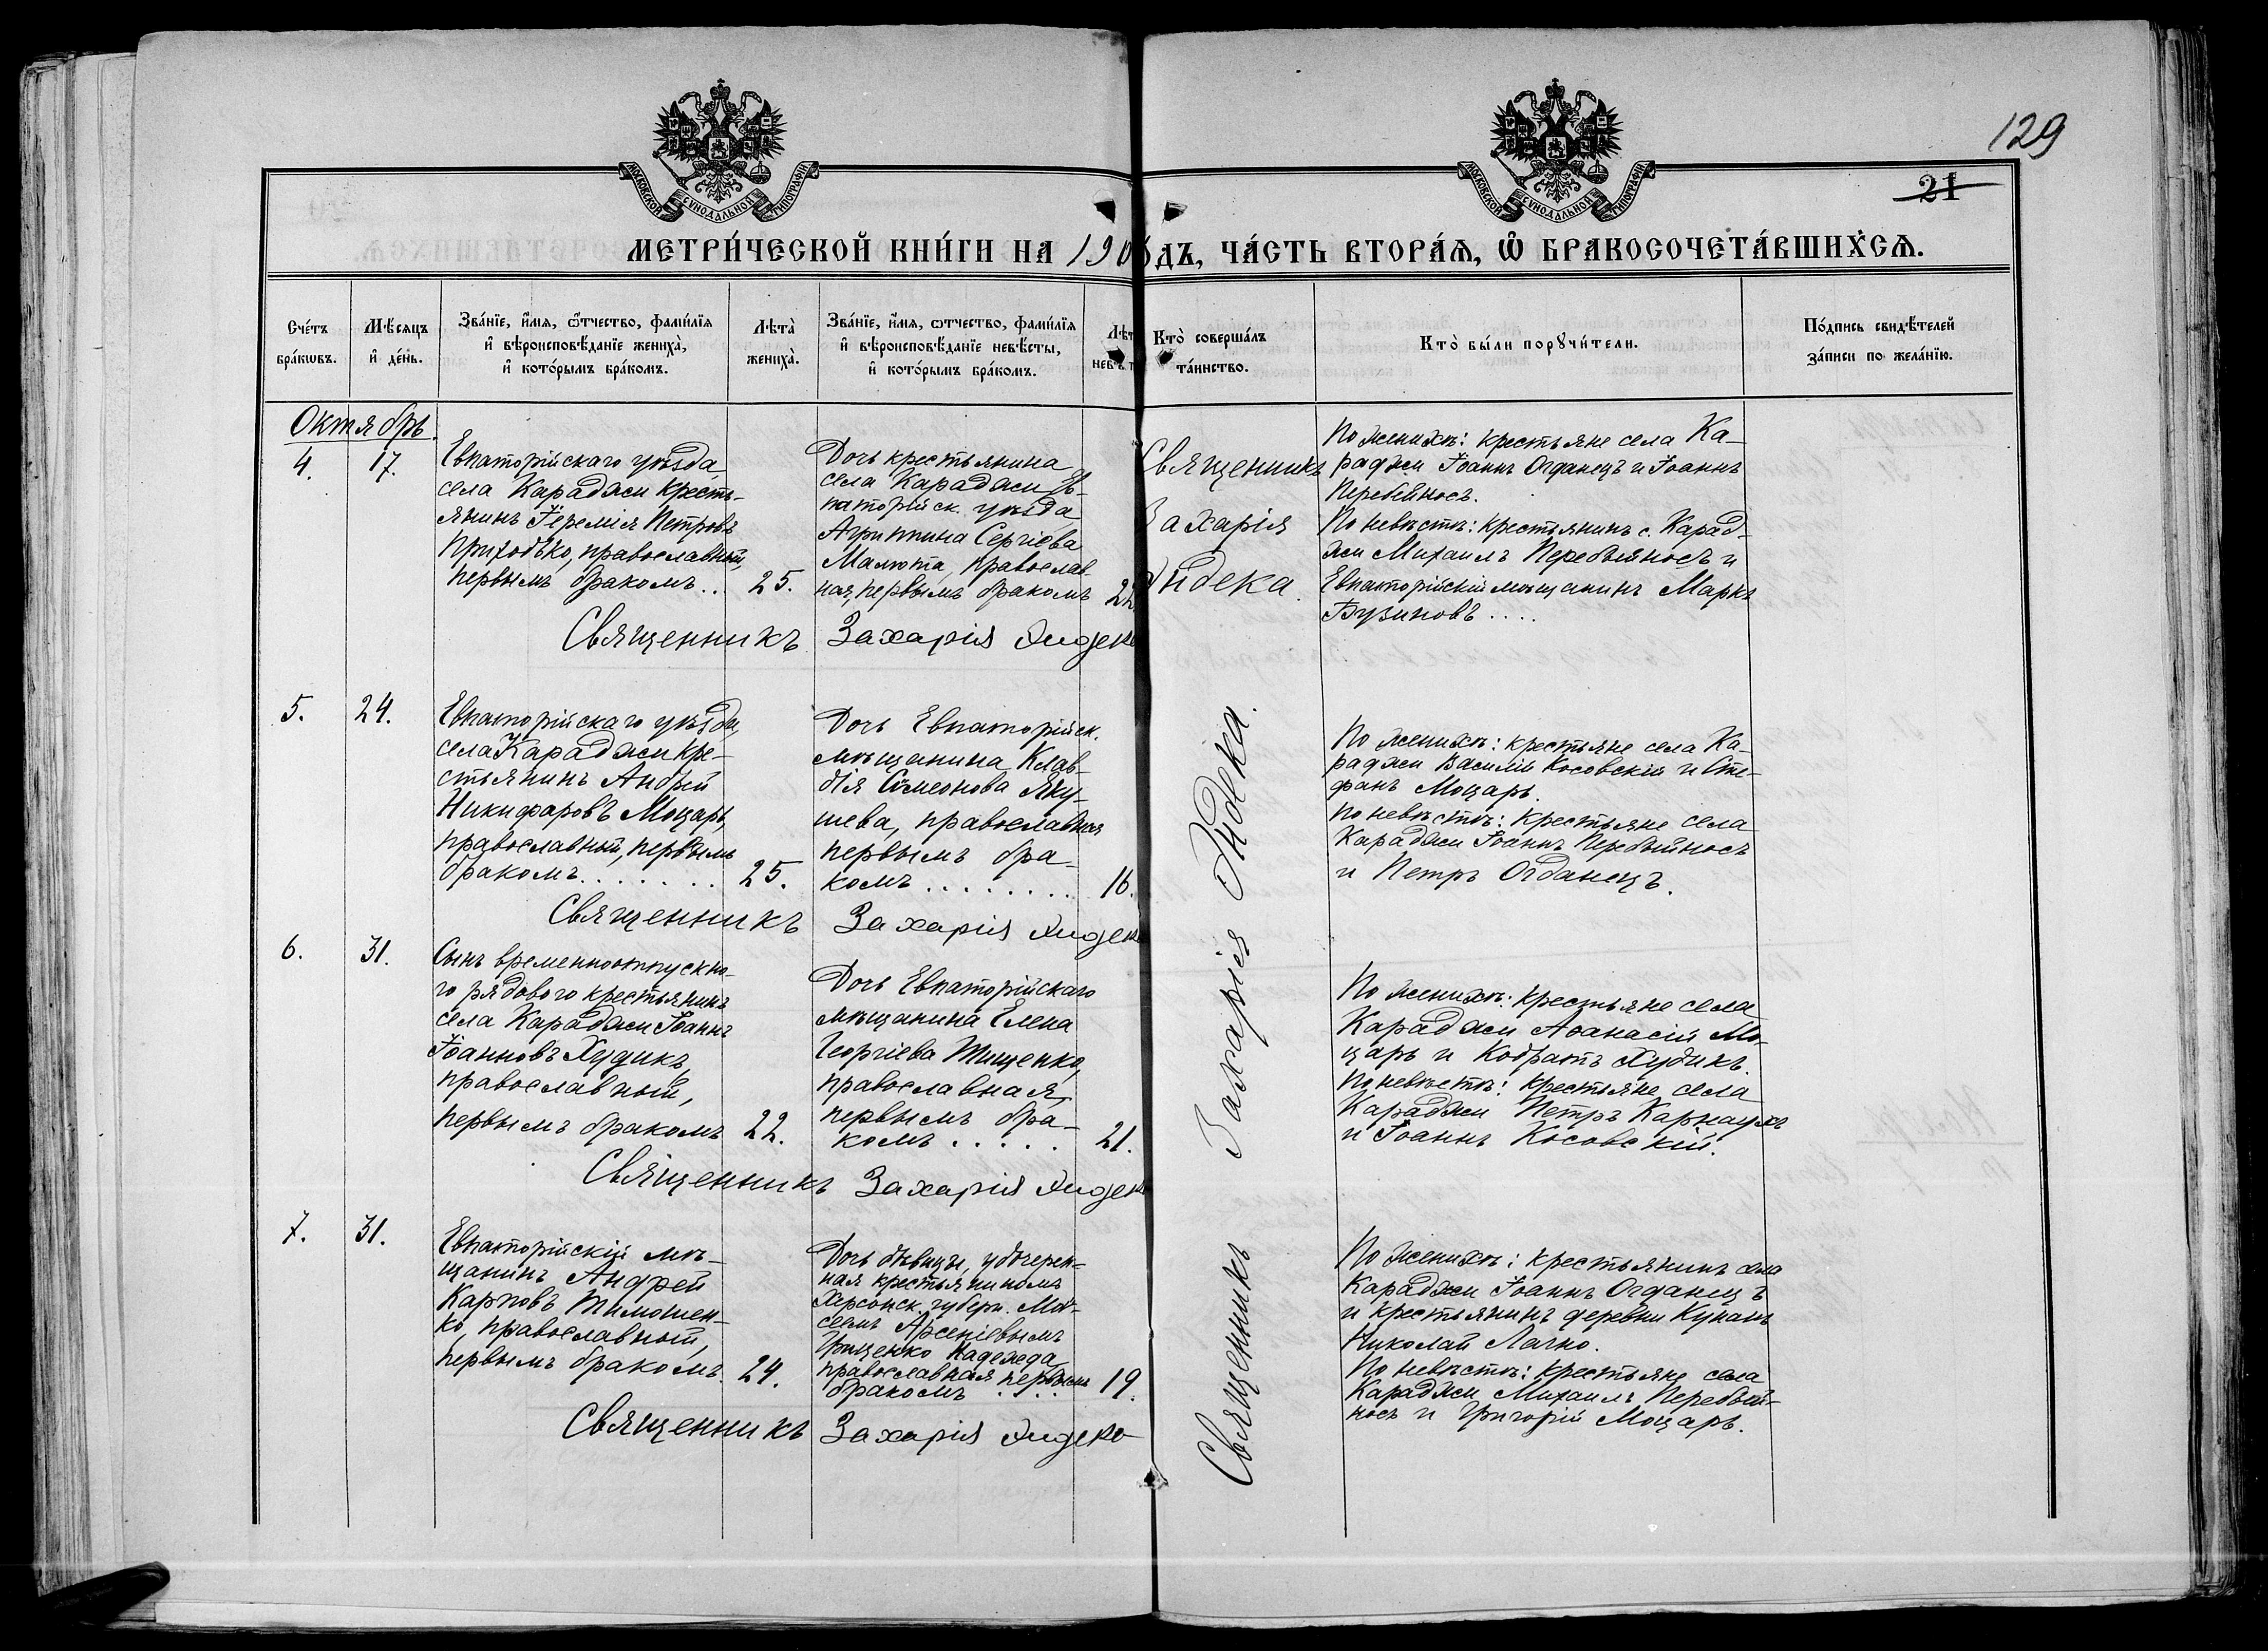 129
МОСКОВСКОЙ СѴНОДАЛЬНОЙ ТИПОГРАФІИ
МОСКОВСКОЙ СѴНОДАЛЬНОЙ ТИПОГРАФІИ
21
МЕТРИ́ЧЕСКОЙ КНИ́ГИ НА 190 ДЪ, ЧА́СТЬ ВТОРА́Ѧ, Ѿ БРАКОСОЧЕТА́ВШИХСѦ.
Сче́тъ бра́кѡвъ.
Мѣ́сяцъ и҆ де́нь.
Зва́нїе, и҆́мя, ѻ҆́тчество, фами́лїя
и҆ вѣроисповѣ́данїе жениха̀,
и҆ кото́рымъ бра́комъ.
Лѣта̀
жениха̀.
Зва́нїе, и҆́мя, ѻтчество, фами́лїя
и҆ вѣроисповѣ́данїе невѣ́сты,
и҆ кото́рымъ бра́комъ.
Лѣт
невѣ
Кто̀ соверша́лъ
та́инство.
Кто̀ бы́ли порꙋчи́тели.
По́дпись свидѣ́телей
за́писи по жела́нїю.
Октябрь.
4. 17.
Евпаторійскаго уѣзда
села Караджи кресть-
янинъ Іеремія Петровъ
Приходько, православный,
первымъ бракомъ.. 25.
Дочь крестьянина
села Караджи Ев-
паторійск. уѣзда
Агриппина Сергіева
Малюта, православ-
ная, первымъ бракомъ 22
Священникъ
Захарія
Дидека.
По женихѣ: крестьяне села Ка-
раджи Іоаннъ Огданецъ и Іоаннъ
Перебейносъ.
По невѣстѣ: крестьянинъ с. Карад-
жи Михаилъ Перебыйносъ и
Евпаторійскій мѣщанинъ Маркъ
Бузиновъ....
Священникъ Захарія Дидека
5. 24.
Евпаторійскаго уѣзда,
села Караджи кре-
стьянинъ Андрей
Никифаровъ Моцарь,
православный, первымъ
бракомъ....... 25.
Дочь Евпаторійск.
мѣщанина Клав-
дія Сѵмеонова Яку-
шева, православная
первымъ бра-
комъ........ 16.
По женихѣ: крестьяне села Ка-
раджи Василій Косовскій и Сте-
фанъ Моцарь.
По невѣстѣ: крестьяне села
Караджи Іоаннъ Перебыйносъ
и Петръ Огданецъ.
Священникъ Захарія Дидека
6. 31.
Сынъ временноотпускно-
го рядового крестьянинъ
села Караджи Іоаннъ
Іоанновъ Худикъ,
православный,
первымъ бракомъ 22.
Дочь Евпаторійскаго
мѣщанина Елена
Георгіева Тищенко,
православная,
первымъ бра-
комъ..... 21.
По женихѣ: крестьяне села
Караджи Аѳанасій Мо-
царь и Кодратъ Худикъ.
По невѣстѣ: крестьяне села
Караджи Петръ Карнаухъ
и Іоаннъ Косовскій.
Священникъ Захарія Дидека
7. 31.
Евпаторійскій мѣ-
щанинъ Андрей
Карповъ Тимошен-
ко, православный,
первымъ бракомъ. 24.
Дочь дѣвицы, удочерен-
ная крестьяниномъ
Херсонск. губерн. Мои-
сеемъ Арсеніевымъ
Грищенко Надежда
православная первымъ
бракомъ.... 19.
По женихѣ: крестьянинъ села
Караджи Іоаннъ Огданецъ
и крестьянинъ деревни Кунанъ
Николай Лачно.
По невѣстѣ: крестьяне села
Караджи Михаилъ Перебый-
носъ и Григорій Моцарь.
Священникъ Захарія Дидека
Священникъ Захарія Дидека.